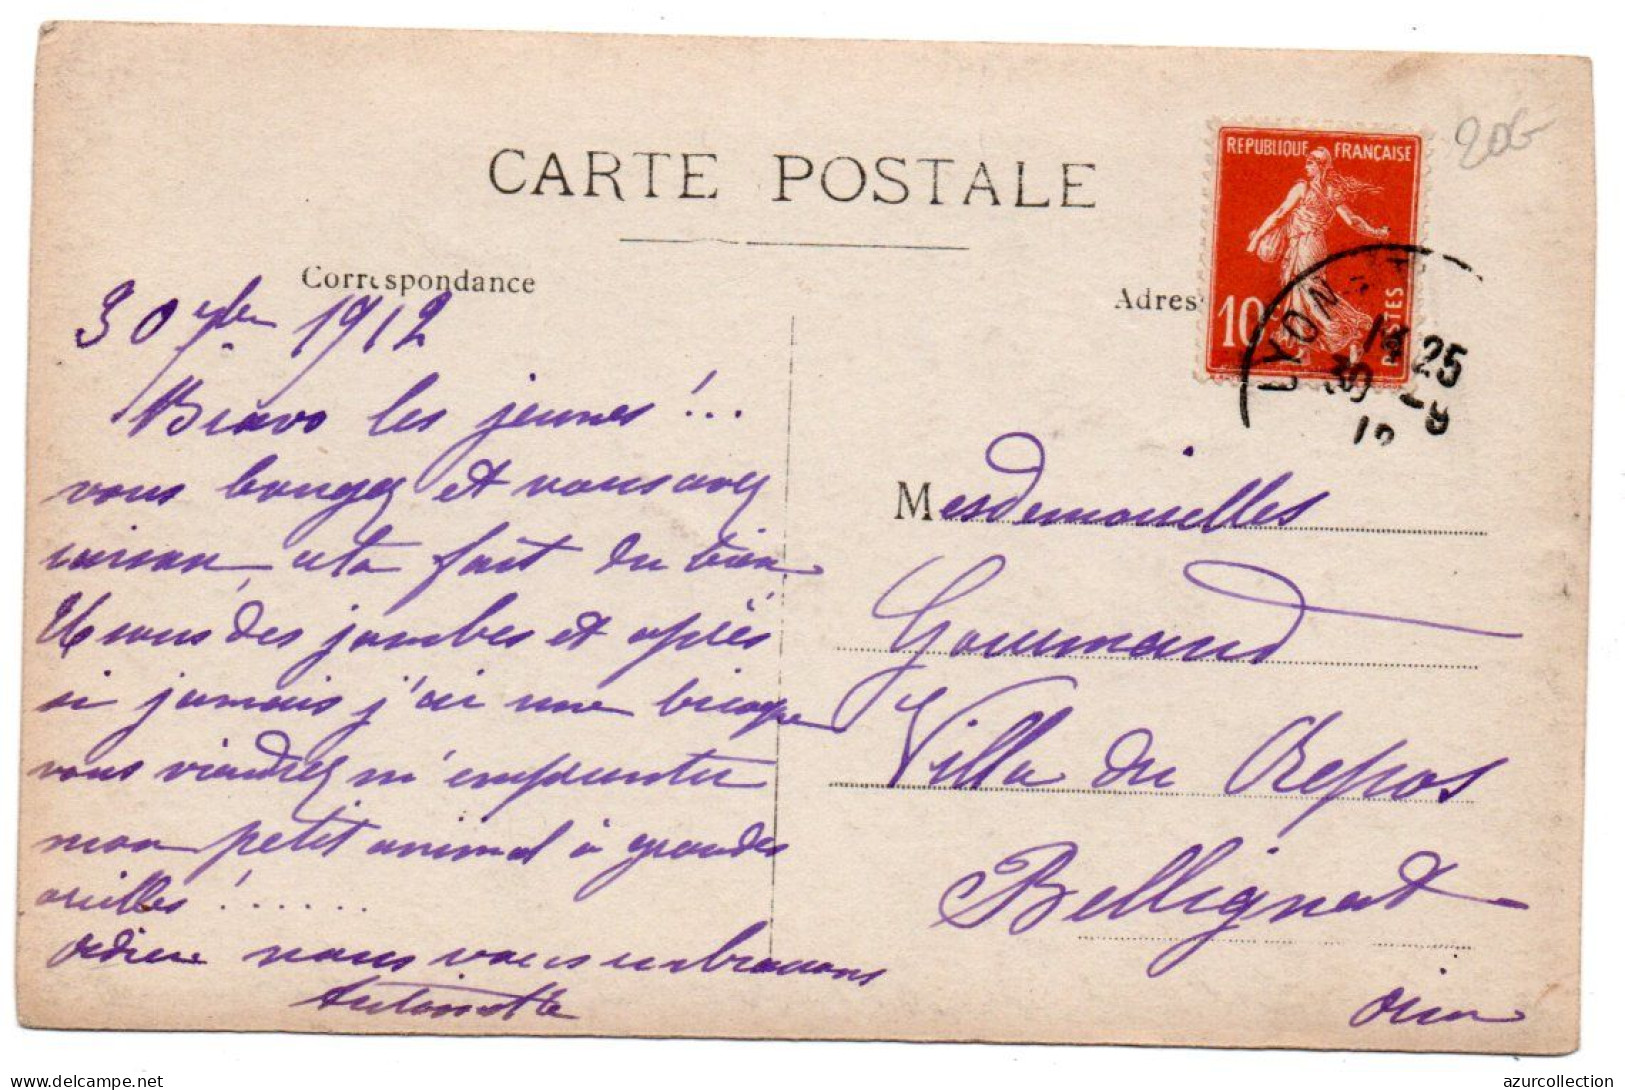 CARTE POSTALE
Correspondance
30 7bre 1912
Bravo les jeunes !..
vous bougez et vous avez
raison, cela fait du bien
des jambes et après
si jamais j'ai une bicoque
vous viendrez m'emprunter
mon petit animal à grandes
oreilles !......
Adieu nous vous embrassons
Antoinette
Adres
REPUBLIQUE FRANÇAISE
10c
POSTES
LYON
25
30 - 9
12
206
Mesdemoiselles
Gourmand
Villa du Repos
Bellignat
Ain
delcampe.net
azurcollection